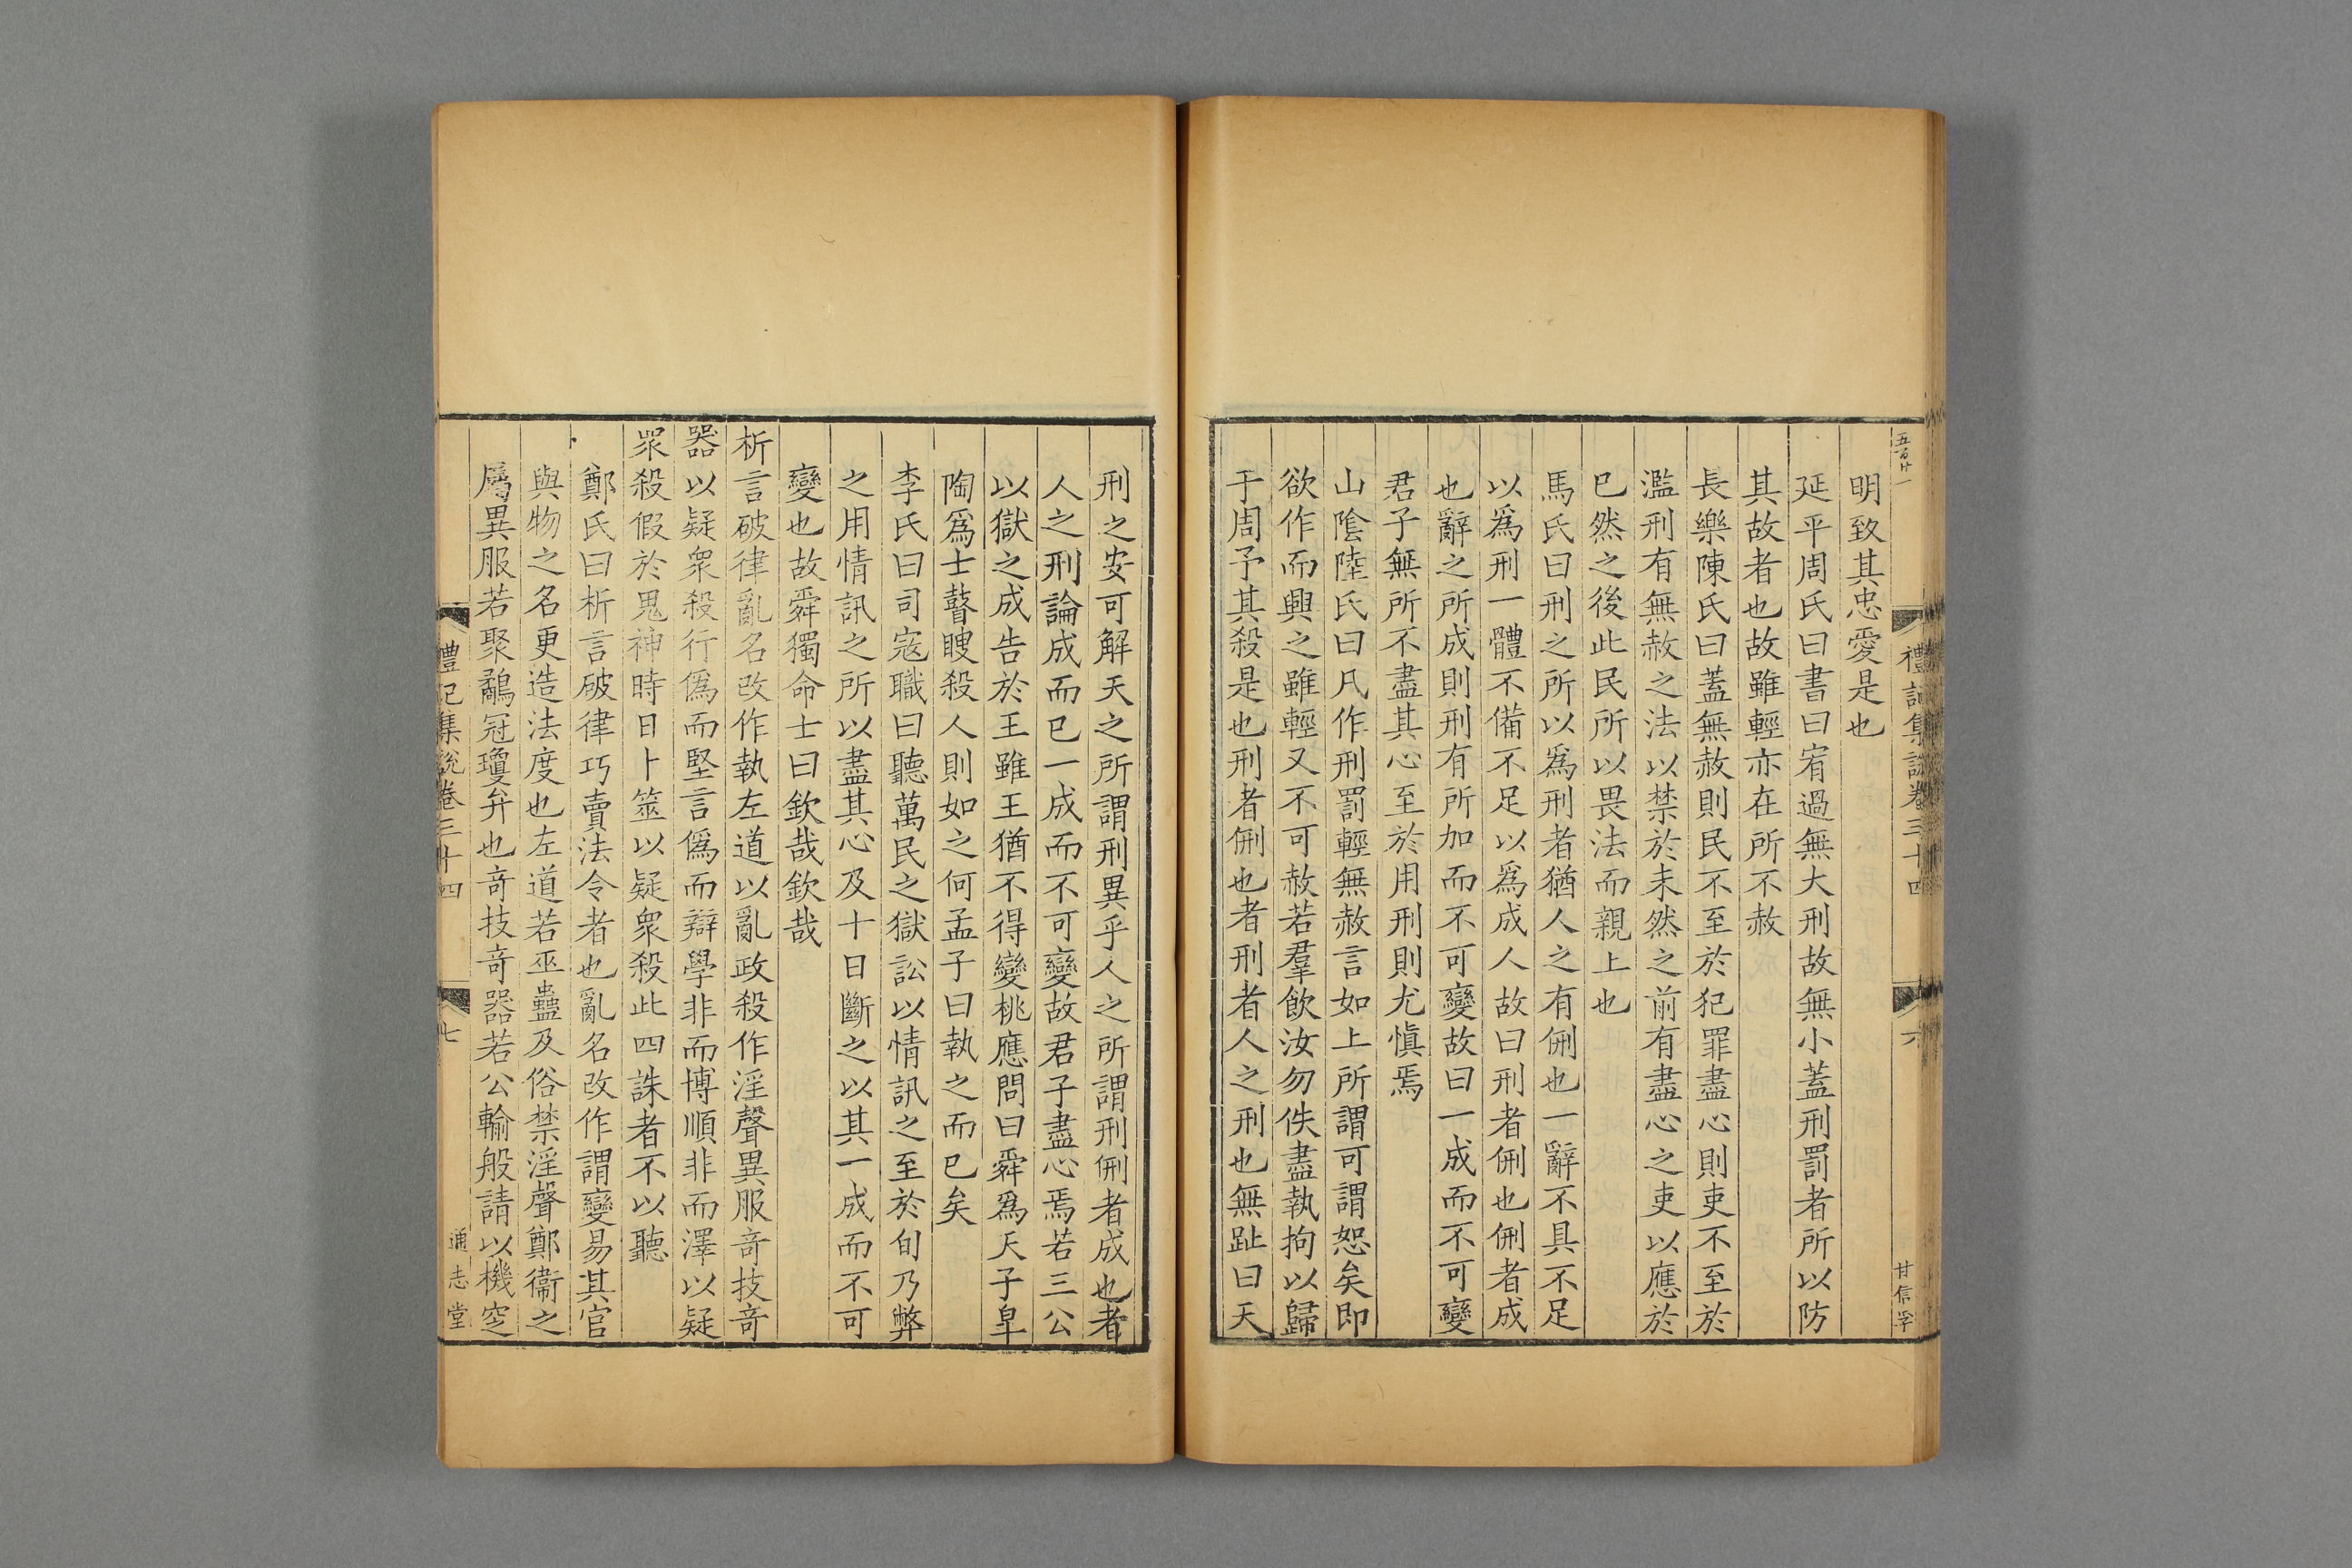 五百廿一
禮記集說卷三十四
六
甘信孚
明致其忠愛是也
延平周氏曰書曰宥過無大刑故無小蓋刑罰者所以防
其故者也故雖輕亦在所不赦
長樂陳氏曰蓋無赦則民不至於犯罪盡心則吏不至於
濫刑有無赦之法以禁於未然之前有盡心之吏以應於
已然之後此民所以畏法而親上也
馬氏曰刑之所以為刑者猶人之有侀也一辭不具不足
以爲刑一體不備不足以爲成人故曰刑者侀也侀者成
也辭之所成則刑有所加而不可變故曰一成而不可變
君子無所不盡其心至於用刑則尤愼焉
山陰陸氏曰凡作刑罰輕無赦言如上所謂可謂恕矣即
欲作而興之雖輕又不可赦若羣飲汝勿佚盡執拘以歸
于周予其殺是也刑者侀也者刑者人之刑也無趾曰天
刑之安可解天之所謂刑異乎人之所謂刑侀者成也者
人之刑論成而已一成而不可變故君子盡心焉若三公
以獄之成告於王雖王猶不得變桃應問曰舜爲天子皐
陶爲士瞽瞍殺人則如之何孟子曰執之而已矣
李氏曰司寇職曰聽萬民之獄訟以情訊之至於旬乃弊
之用情訊之所以盡其心及十日斷之以其一成而不可
變也故舜獨命士曰欽哉欽哉
析言破律亂名改作執左道以亂政殺作淫聲異服奇技奇
器以疑衆殺行僞而堅言僞而辯學非而博順非而澤以疑
衆殺假於鬼神時日卜筮以疑衆殺此四誅者不以聽
鄭氏曰析言破律巧賣法令者也亂名改作謂變易其官
與物之名更造法度也左道若巫蠱及俗禁淫聲鄭衞之
屬異服若聚鷸冠瓊弁也奇技奇器若公輸般請以機窆
禮記集說卷三十四
七
通志堂